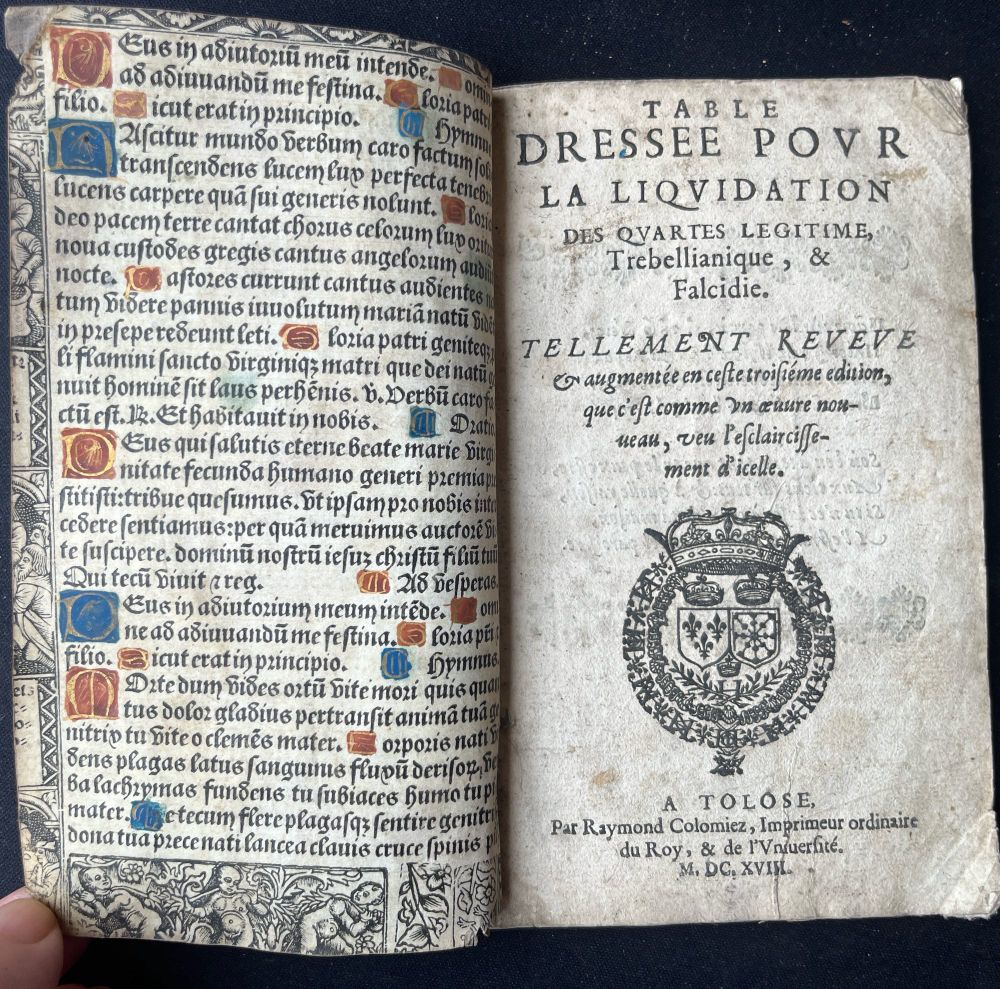 Deus in adiutoriū meū intende. Domin
ad adiuuandū me festina. Gloria patri
filio. Sicut erat in principio. Hymnu
NAscitur mundo verbum caro factum
transcendens lucem lux perfecta teneb
lucens carpere quā sui generis nolunt. Gloria
deo pacem terre cantat chorus celorum lux
noua custodes gregis cantus angelorum
nocte. Pastores currunt cantus audientes
tum videre pannis inuolutum mariā natū vide
in presepe redeunt leti. Gloria patri genitoqꝫ
li flamini sancto virginiqꝫ matri que dei natū
nuit hominē sit laus perhēnis. v. Verbū caro fa
ctū est. ꝶ. Et habitauit in nobis. Oratio
DEus qui salutis eterne beate marie virgi
nitate fecunda humano generi premia p
stitisti: tribue quesumus. vt ipsam pro nobis inter
cedere sentiamus: per quā meruimus auctorē vi
te suscipere. dominū nostrū iesuꝫ christū filiū tuū
Qui tecū viuit ⁊ reg. Ad vesperas.
DEus in adiutorium meum intēde. Domi
ne ad adiuuandū me festina. Gloria pr̄i
filio. Sicut erat in principio. Hymnus.
MOrte dum vides ortū vite mori quis quan
tus dolor gladius pertransit animā tuā ge
nitrix tu vite o clemēs mater. Corporis nati v
dens plagas latus sanguinis fluxū
ba lachrymas fundens tu subiaces humo tu
mater. tecum flere plagasqꝫ sentire genitri
dona tua prece nati lancea clauis cruce spinis
TABLE
DRESSEE POVR
LA LIQVIDATION
DES QVARTES LEGITIME,
Trebellianique, &
Falcidie.
TELLEMENT REVEVE
& augmentée en ceste troisiéme edition,
que c'est comme vn œuure nou-
ueau, veu l'esclaircisse-
ment d'icelle.
A TOLOSE,
Par Raymond Colomiez, Imprimeur ordinaire
du Roy, & de l'Vniuersité.
M. DC. XVIII.